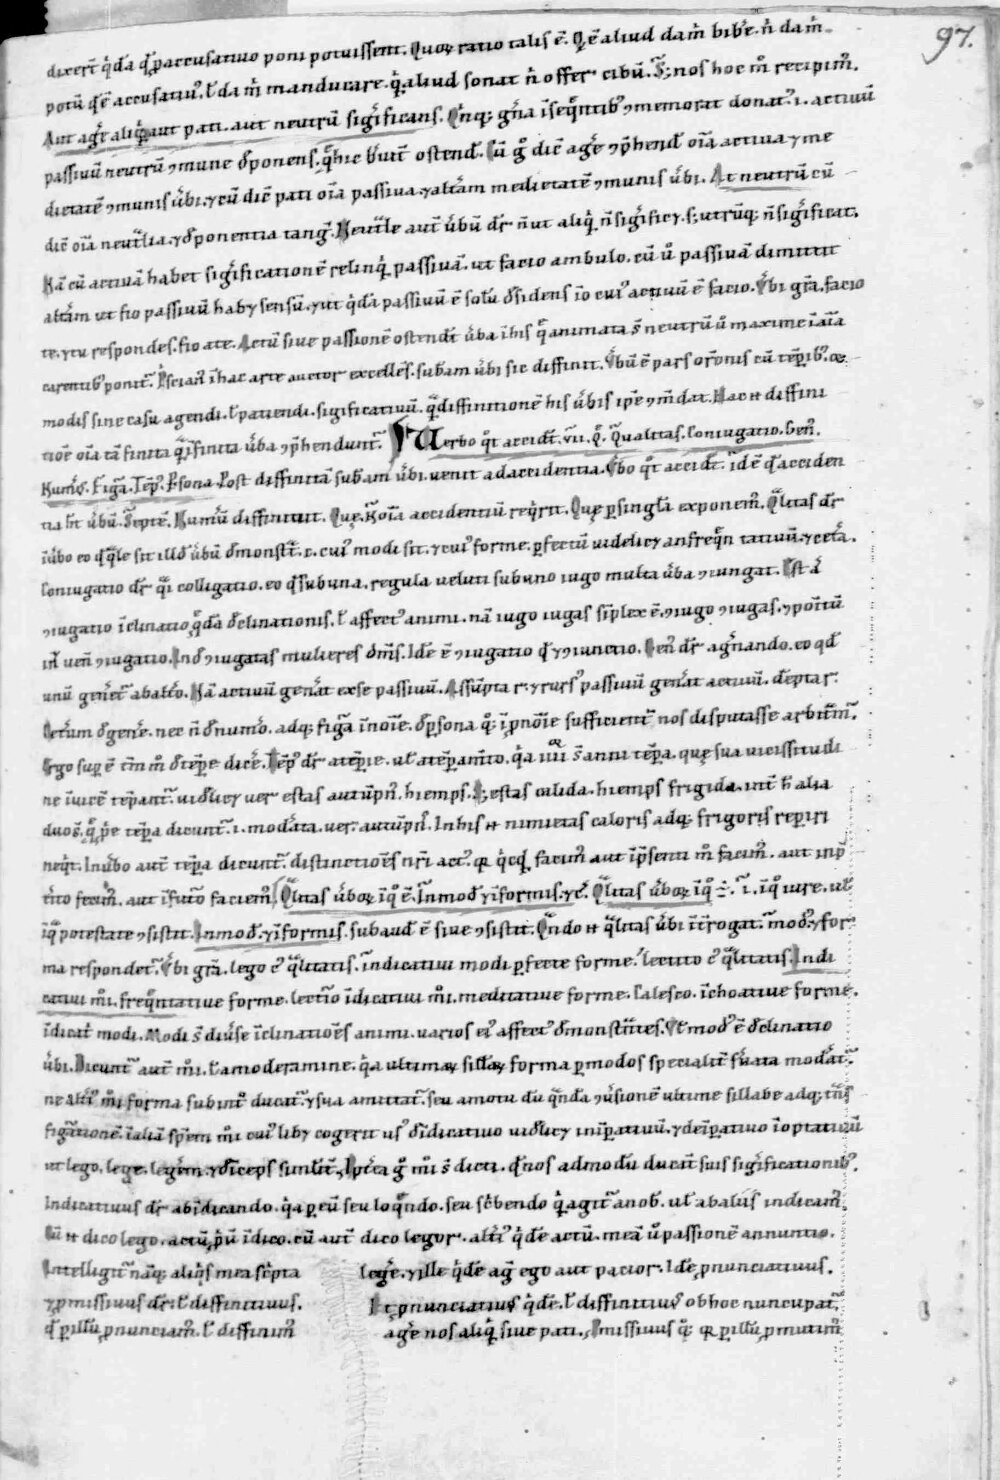 97.
dixerꝉ q̄dā q̄ ꝑ accusatiuo poni potuissent. Quoꝝ ratio talis ē. Qͥ ē aliud dam̄ bibͤe. n̄ dam̄
potū qͥ ē accusatiuꝰ. ł da m̄ manducare. qͥ aliud sonat n̄ offer cibū. S; nos hoc mͦ recipimꝰ.
Aut agͤe aliqͥd aut pati. aut neutrū significans. qͥnq; gn̄a ī seq̄ntibꝰ ɔmemorat donatꝰ .i. actiuū
passiuū neutrū ɔmune deponens. q̄ hic breuit̄ ostend̄. Cū gͦ dic̄ agͤe ɔp̄hend̄ oīa actiua ⁊ me
dietatē ɔmunis uͤbi. ⁊ cū dic̄ pati oīa passiua. ⁊ altͣam medietatē ɔmunis uͤbi. At neutrū cū
dic̄ oīa neutͣlia. ⁊ deponentia tanḡ. Neutͣle aut̄ uͤbū dr̄ n̄ ut aliqͥd n̄ significet. s; utrūq; n̄ significat.
Nā cū actiuā habet significationē relinqͥt passiuā. ut facio ambulo. cū uͦ passiuā dimittit
altͣam ut fio passiuū habet sensū. ⁊ ut qͥdā passiuū ē solū desidens īo cuiꝰ actiuū ē facio. Vͤbi grͣa. facio
te. ⁊ tu respondes. fio a te. Actū siue passionē ostendt̄ uͤba ī his q̄ animata s̄ neutrū uͦ maxime ī aīa
carentibꝰ ponit᷑. P̄scianꝰ ī hac arte auctor excellēs. subam uͤbi sic diffinit. Vͤbū ē pars orōnis cū tēpībꝰ. &
modis sine casu agendi. ł patiendi. significatiuū. qͣ diffinitionē his uͤbis ipͤe ɔm̄dat. Nac ⁊ diffini
tiōe oīa tā finita qͣ ī finita uͤba ɔp̄hendunt᷑. Verbo qͦt accidt̄. vii. q̄. Qualitas. Coniugatio. Genꝰ.
Numͤs. Figͣa. Tēpꝰ. Psona. Post diffinitā subam uͤbi. uenit ad accidentia. Vͤbo qͦt accidt̄. ide ē q̄ acciden
tia hn̄t uͤbū. Septē. Numͤū diffinituit. Que. Noīa accidentiū reqͥrit. Que ꝑ singla exponemꝰ. qͣlitas dr̄
ī uͤbo eo qͥ qͣle sit illđ uͤbū demonstrͣt. i. cuiꝰ modi sit. ⁊ cuiꝰ forme. ꝑfectū uidelicꝫ an freq̄ntatiuū. ⁊ cetͣa.
Coniugatio dr̄ qͣi colligatio. eo qͥ sub una. regula ueluti sub uno iugo multa uͤba ɔiungat. Est ł
ɔiugatio īclinatio qͥdā declinationis. ł affectꝰ animi. nā iugo iugas simplex ē. ɔiugo ɔiugas. ɔpositū
in̄ uen̄ ɔiugatio. In̄ ɔiugatas mulieres dm̄s. Ide ē ɔiugatio qͥ ⁊ ɔiunctio. Genꝰ dr̄ agn̄ando. eo qđ
unū genͤet᷑ ab altͤo. Nā actiuū genͤat ex se passiuū. Assūpta r. ⁊ rursꝰ passiuū genͤat actiuū. dempta r.
Uetͤum de genͤe. nec n̄ de numͤo. adq; figͣa ī noīe. de psona qͦ; ī ꝓnoīe sufficient᷑ nos disputasse arbitͣm᷑.
Ergo supͤ ē tm̄ mͦ de tēpͤe dicͤe. Tēpꝰ dr̄ a tēpͤie. ut̄ a tēpͣam̄to. qͥa iiii s̄ anni tēpͣa. que sua uicissitudi
ne īuicē tēpͣant᷑. uidelicꝫ uer estas autūpnꝰ. hiemps. S; estas calida. hiemps frigida. int̄ h̄ alia
duo s̄. qͥ ꝓpͥe tēpͣa dicunt᷑ .i. modͤata. uer. autūpnꝰ. In his ⁊ nimietas caloris adq; frigoris repiri
neqͥt. In uͤbo aut̄ tēpͣa dicunt᷑. distinctiōes nr̄i actꝰ. qͥ qͥcqͥđ facimꝰ aut ī p̄senti mͦ facimꝰ. aut in p̄
tͤito fecimꝰ. aut ī futͦo faciemꝰ. qͣlitas uͤboꝝ ī qͦ ē. In mođ ⁊ ī formis. ⁊c̄. qͣlitas uͤboꝝ ī qͦ ÷. i. ī qͦ iure. ut̄
ī qͣ potestate ɔsistit. In mođ. ⁊ ī formis. subaud̄ ē siue ɔsistit. qͣndo ⁊ qͣlitas uͤbi īt̄rogat᷑. modꝰ ⁊ for
ma respondet᷑. Vͤbi grͣa. lego cꝰ qͣlitatis. indicatiui modi ꝑfecte forme. Lectito cꝰ qͣlitatis. Indi
catiui mͦi. freq̄ntatiue forme. lectͥo īdicatiui mͦi. meditatiue forme. Calesco. īchoatiue forme.
īdicatͥ modi. Modi s̄ diuͤse īclinatiōes animi. uarios eiꝰ affectꝰ demonstͣntes. Vł modꝰ ē declinatio
uͤbi. Dicunt᷑ aut̄ mͦi. ł a moderamine. qͥa ultimaꝝ sillaꝝ forma ꝑ modos specialit̄ seruata modͤat᷑
ne altͤiꝰ mͦi forma subintͦducat᷑. ⁊ sua amittat᷑. seu a motu dū qͣndā ɔuͤsionē ultime sillabe adq; tͣns
figͣationē. ī aliā spēm mͦi cuiꝰ libꝫ cogerit usꝰ de īdicatiuo uidelicꝫ in īpͣatiuū. ⁊ de īpͣatiuo ī optatiuū
ut lego, lege, legͤem. ⁊ deīceps similit̄. Ipͣcea gͦ mͦi s̄ dicti. qͥ nos admodū ducāt suis significationibꝰ.
Indicatiuus dr̄ ab īdicando. qͥa ꝑ eū seu loq̄ndo. seu scͥbendo qͥd agit᷑ a nobꝰ. ut̄ ab aliis indicamꝰ.
Cū ⁊ dico lego. actū ꝓpͥū īdico. cū aut̄ dico legor. altͤiꝰ qͥdē actū. meā uͦ passionē annuntio.
Intelligit᷑ nāq; aliqͥs mea scͥpta legͤe. ⁊ ille qͥdē agͤ ego aut pacior. Idē ꝓnunciatiuus.
⁊ ꝓmissiuus dr̄. ł diffinitiuus. Et ꝓnunciatiuꝰ qͥdē. ł diffinitiuꝰ ob hoc nuncupat᷑.
qͥ ꝑ illū ꝓnunciamꝰ. ł diffinimꝰ agͤe nos aliqͥd siue pati. Pmissiuus qͦ; qͥ ꝑ illū ꝓmittimꝰ